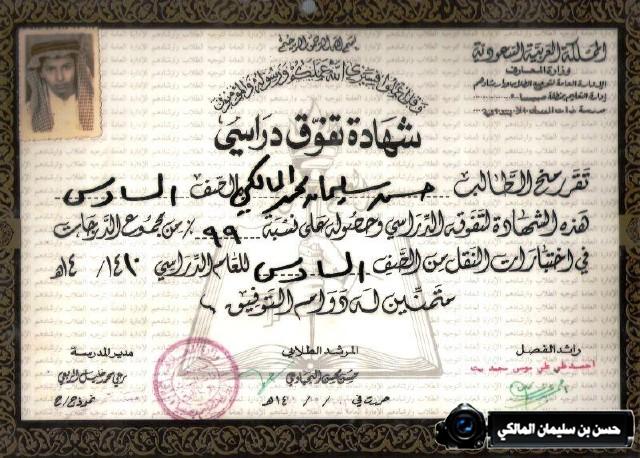 بسم الله الرحمن الرحيم
المملكة العربية السعودية
وزارة المعارف
الإدارة العامة لتوجيه الطلاب وإرشادهم
إدارة التعليم بمنطقة صبيا
وقل اعملوا فسيرى الله عملكم ورسوله والمؤمنون
شهادة تفوق دراسي
تقرر منح الطالب حسن سليمان محمد المالكي بالصف السادس
هذه الشهادة لتفوقه الدراسي وحصوله على نسبة ٩٩ ٪ من مجموع الدرجات
في اختبارات النقل من الصف السادس للعام الدراسي ١٤١٠ / ١٤هـ
متمنين له دوام التوفيق ،،
رائد الفصل
المرشد الطلابي
مدير المدرسة
حررت في / / ١٤٠هـ
حسن بن سليمان المالكي